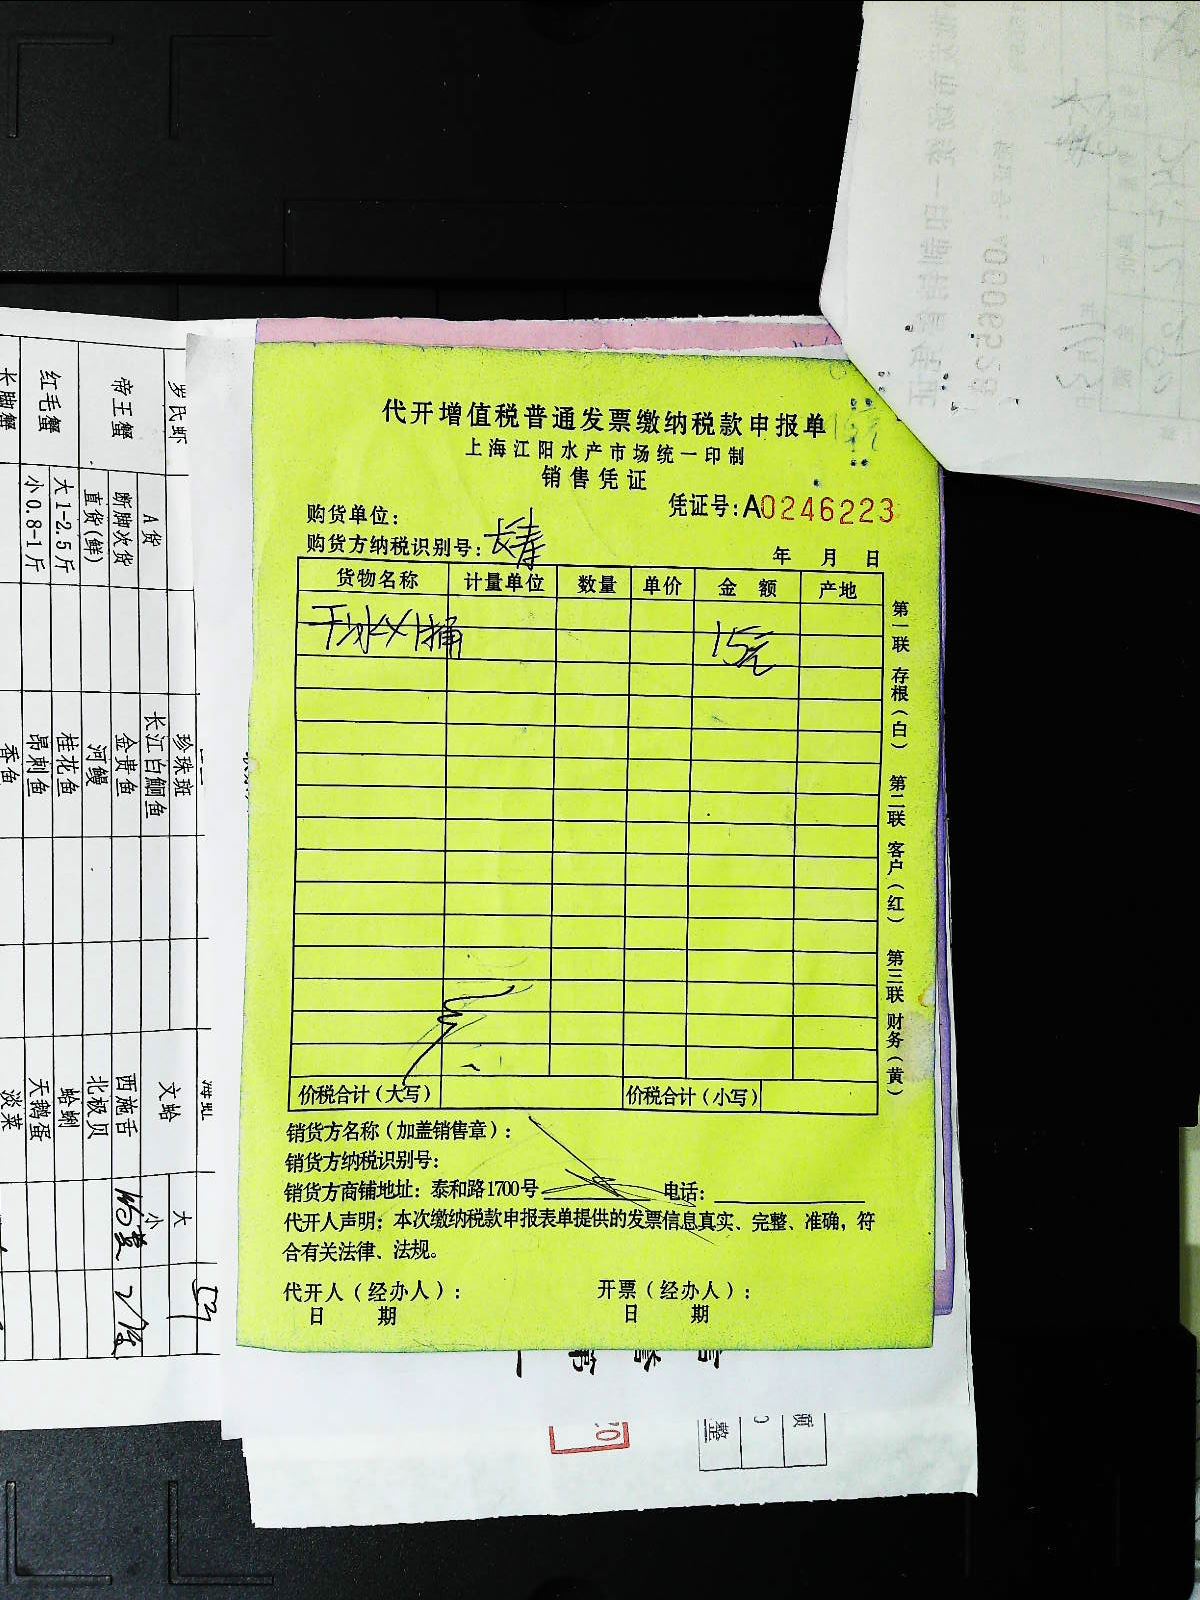 代开增值税普通发票缴纳税款申报单
上海江阳水产市场统一印制
销售凭证
凭证号：A0246223
购货单位：
购货方纳税识别号：长寿
年 月 日
货物名称 计量单位 数量 单价 金 额 产地
干冰×1桶 15元
价税合计（大写） 价税合计（小写）
销货方名称（加盖销售章）：
销货方纳税识别号：
销货方商铺地址：泰和路1700号 电话：
代开人声明：本次缴纳税款申报表单提供的发票信息真实、完整、准确，符
合有关法律、法规。
代开人（经办人）： 开票（经办人）：
日 期 日 期
第一联 存根（白） 第二联 客户（红） 第三联 财务（黄）
罗氏虾 A货 珍珠斑 文蛤 大
断脚次货 长江白鮰鱼 小
帝王蟹 直货(鲜) 金贵鱼 西施舌
河鳗 北极贝
红毛蟹 大1-2.5斤 桂花鱼 蛤蜊
小0.8-1斤 昂刺鱼 天鹅蛋
长脚蟹 香鱼 淡菜
整